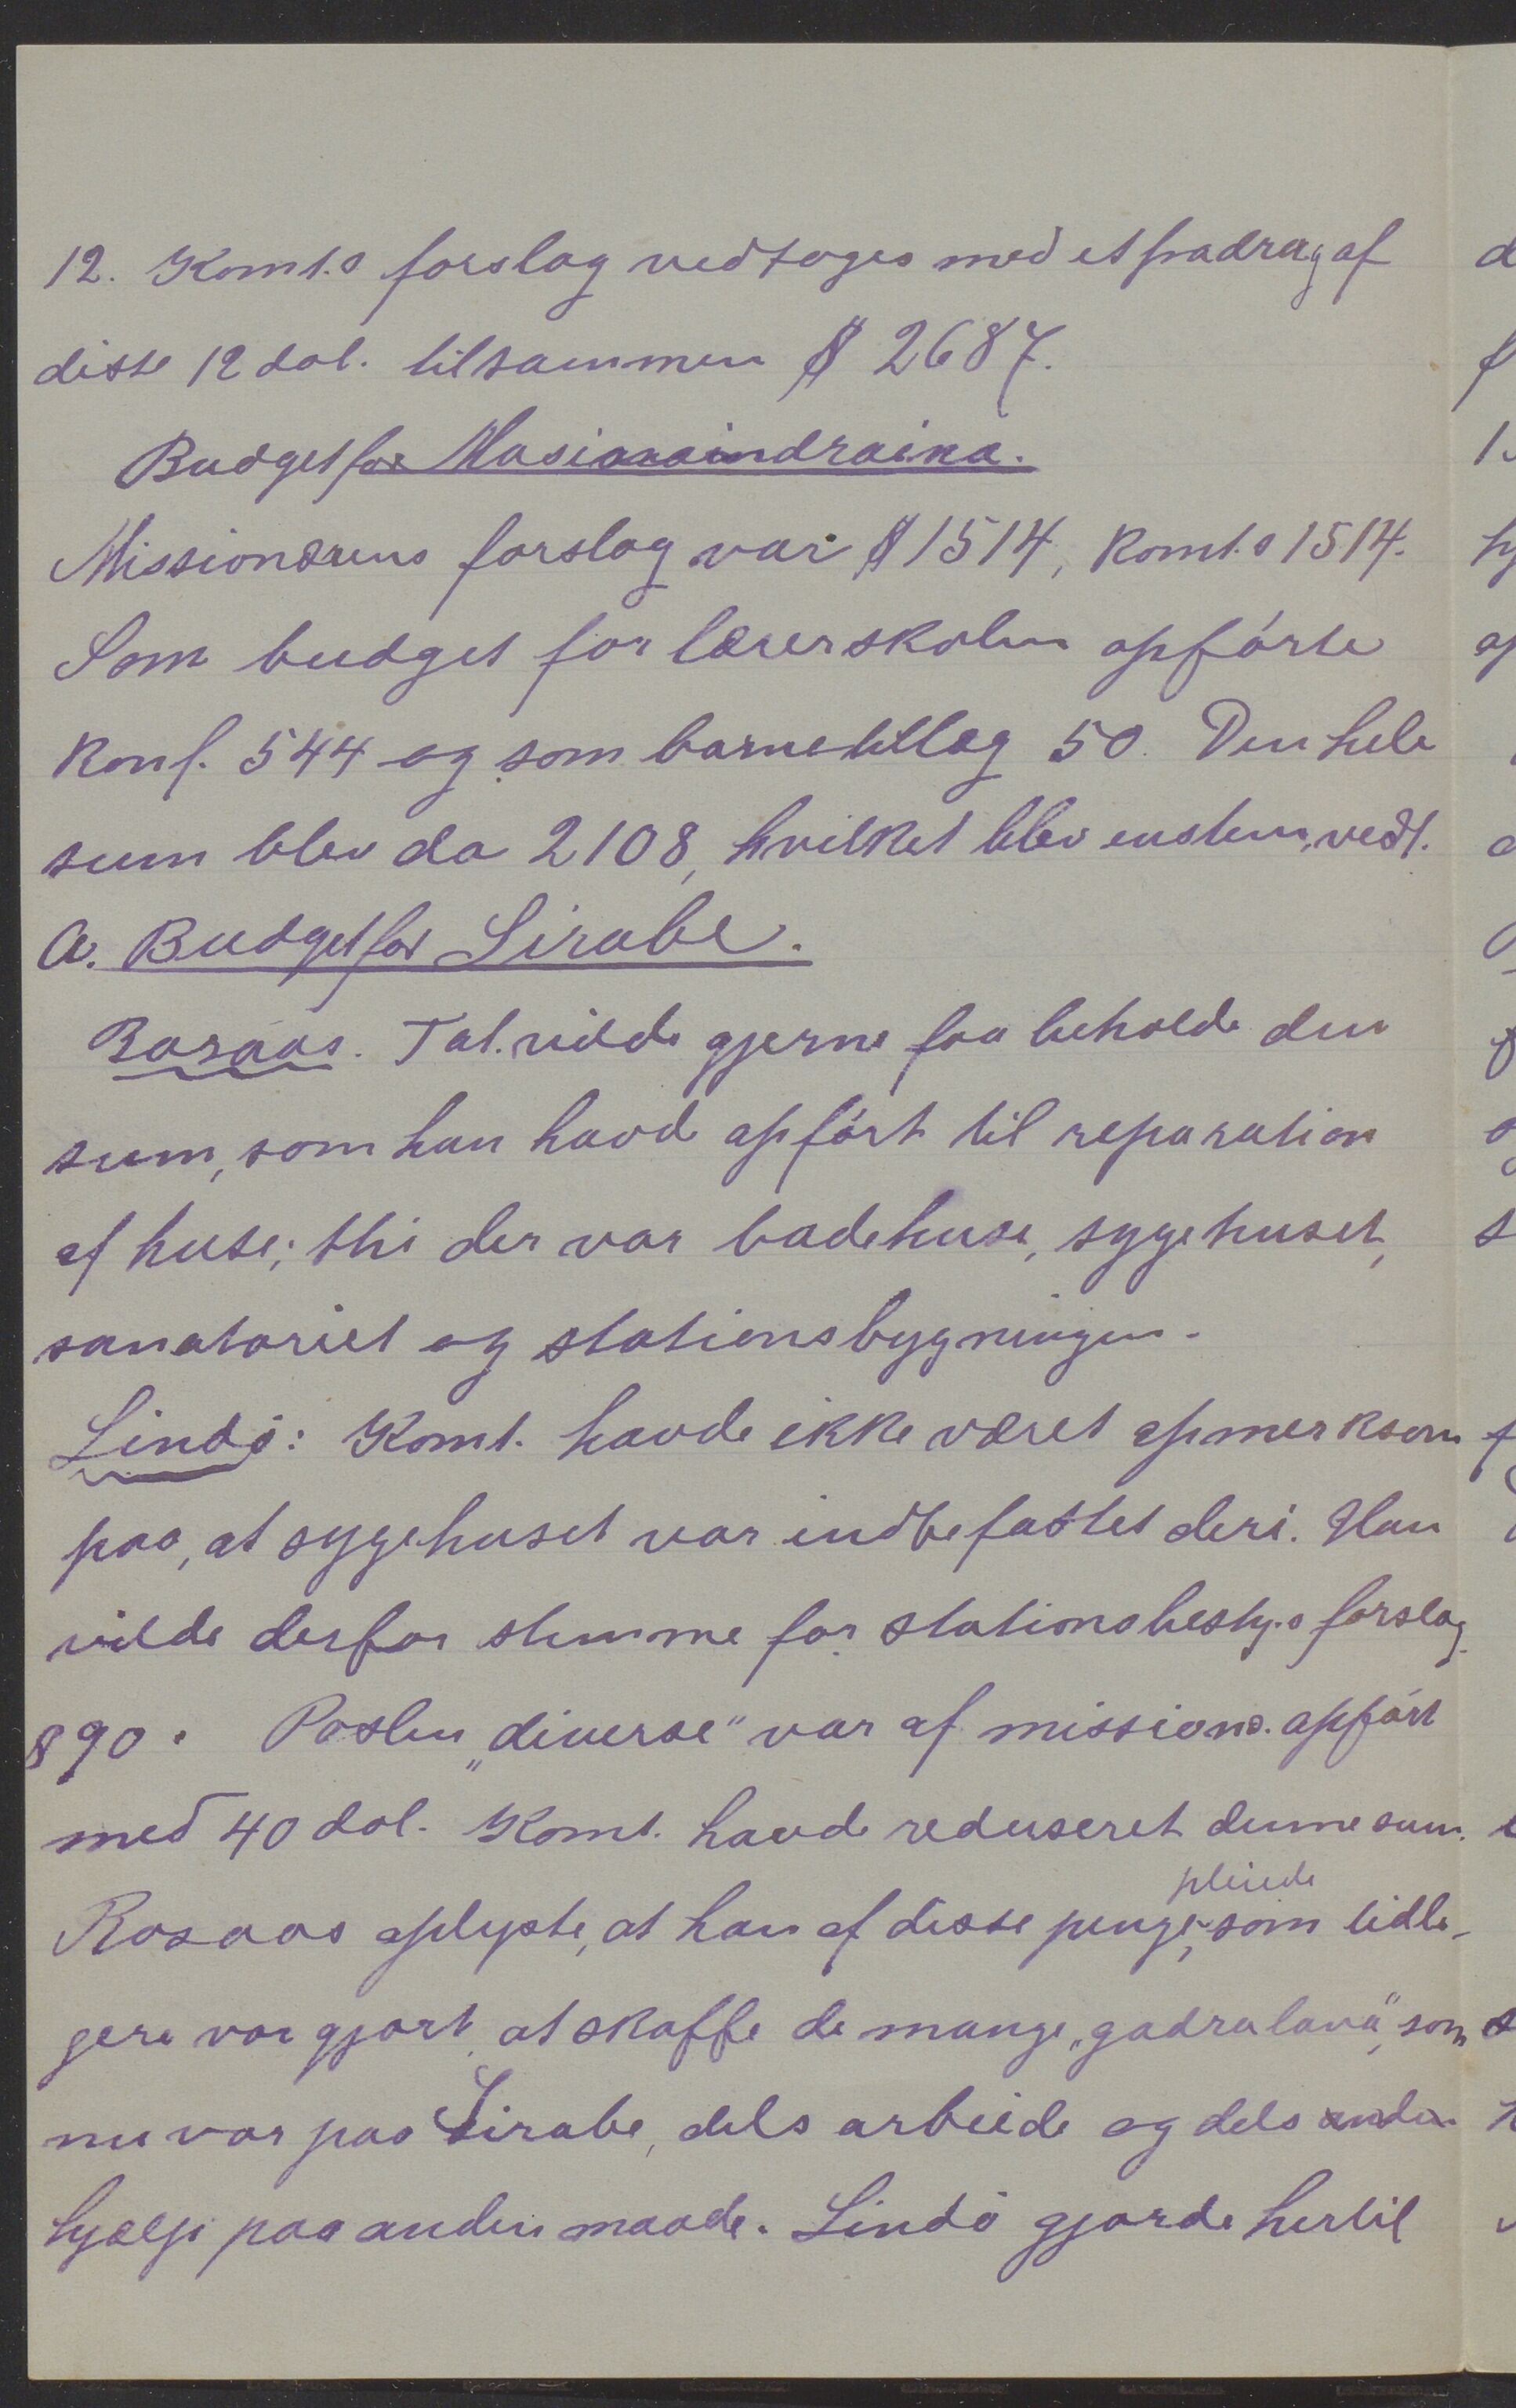 12. Komt.s forslag vedtoges med et fradrag af
disse 12 dol. tilsammen $ 2687.
Budget for Masinaindraina.
Missionærens forslag var $ 1514, Komt.s 1514.
Som budget for lærerskolen opførte
Konf. 544 og som barnetillæg 50. Den hele
sum blev da 2108, hvilket blev enstem. vedt.
a. Budget for Sirabe.
Rosaas. Tal. vilde gjerne faa beholde den
sum, som han havd opført til reparation
af huse; thi der var badehuse, sygehuset,
sanatoriet og stationsbygningen.
Lindø: Komt. havde ikke været opmerksom
paa, at sygehuset var indbefattet deri. Han
vilde derfor stemme for stationsbesty.s forslag
$ 90. Posten „diverse" var af missions. opført
med 40 dol. Komt. havde reduseret denne sum.
pleiede
Rosaas oplyste, at han af disse penge, som tidli-
gere var gjort, at skaffe de mange „gadralava", som
nu var paa Sirabe, dels arbeide og dels anden
hjælp paa anden maade. Lindø gjorde hertil